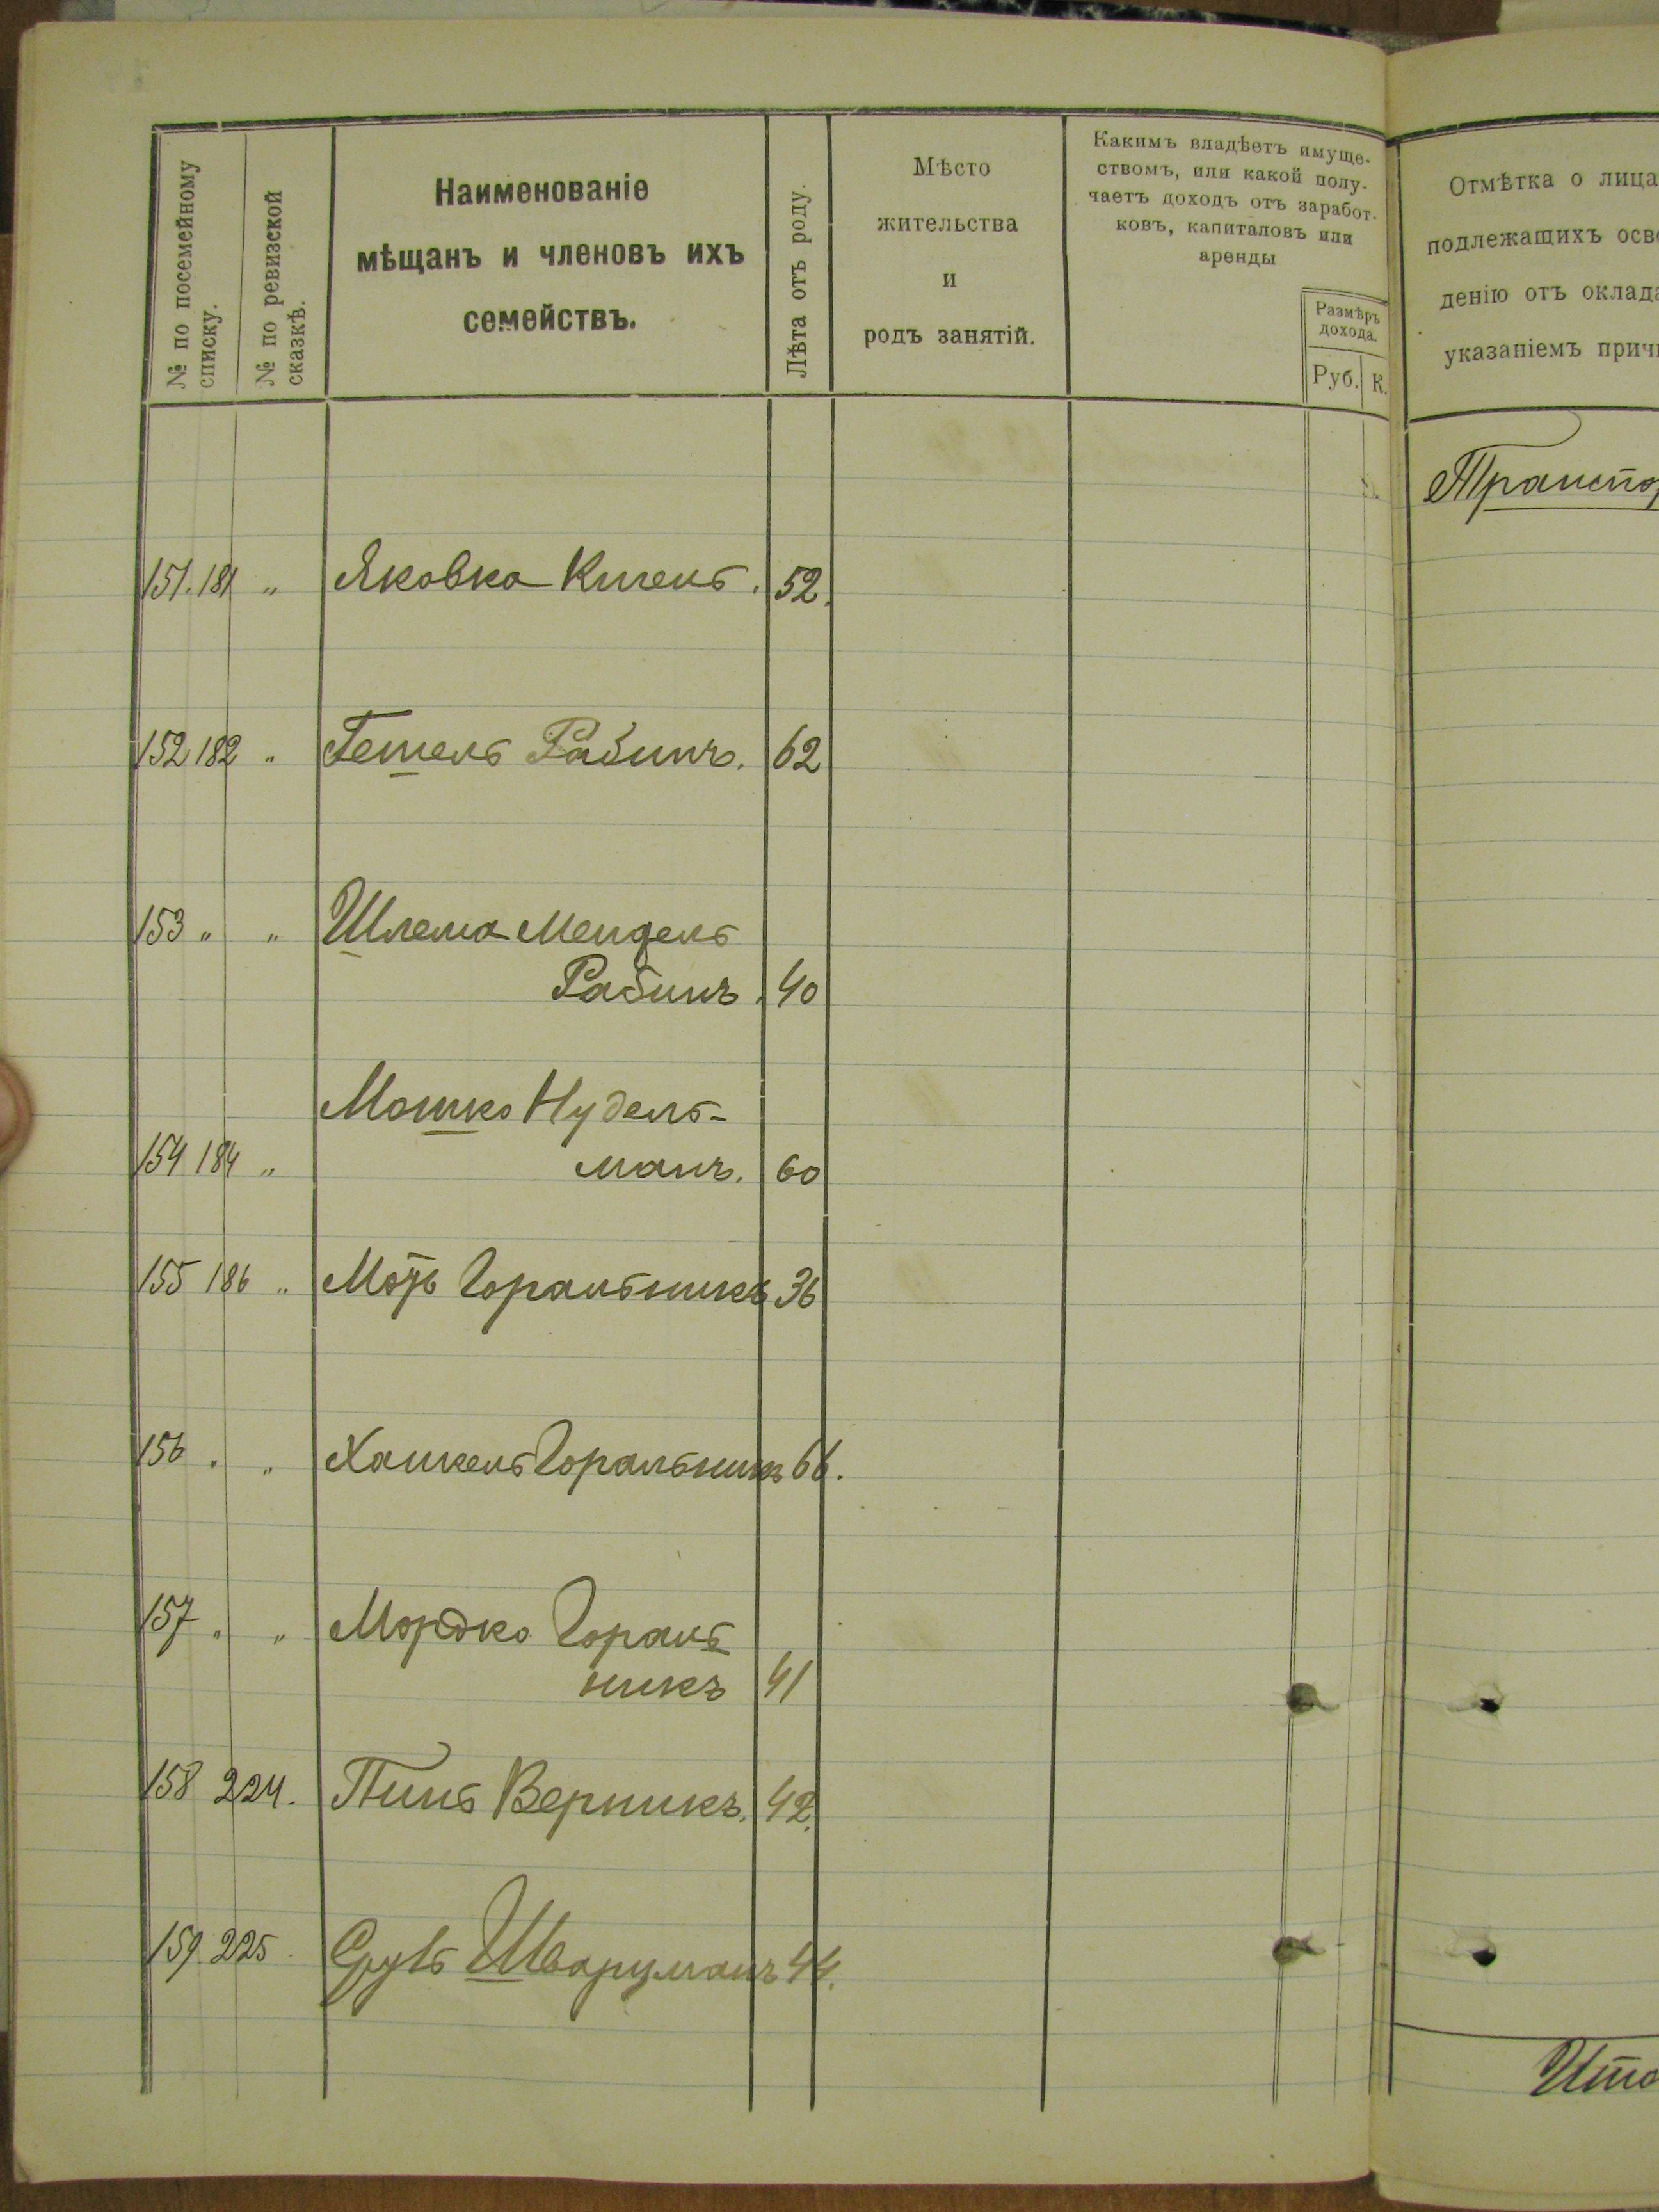 № по посемейному
списку.
№ по ревизской
сказкѣ.
Наименованіе
мѣщанъ и членовъ ихъ
семействъ.
Лѣта отъ роду.
Мѣсто
жительства
и
родъ занятій.
Какимъ владѣетъ имуще-
ствомъ, или какой полу-
чаетъ доходъ отъ заработ-
ковъ, капиталовъ или
аренды
Размѣръ
дохода.
Руб. К.
Отмѣтка о лица
подлежащихъ осво
денію отъ оклада
указаніемъ причи
Транспор
151. 181 „ Яковка 52.
152 182 „ Гешель Рабинъ. 62
153 „ „ Шлема Мендель
Рабинъ. 40
Мошко Нудель-
154 184 „ манъ. 60
155 186 „ Горальникъ 36
156 „ „ Хашкель Горальникъ 66.
157 „ „ Мордко Гораль
никъ 41
158 224. Пинь Верникъ. 42.
159. 225. Сруль Шварцманъ 44.
Ито